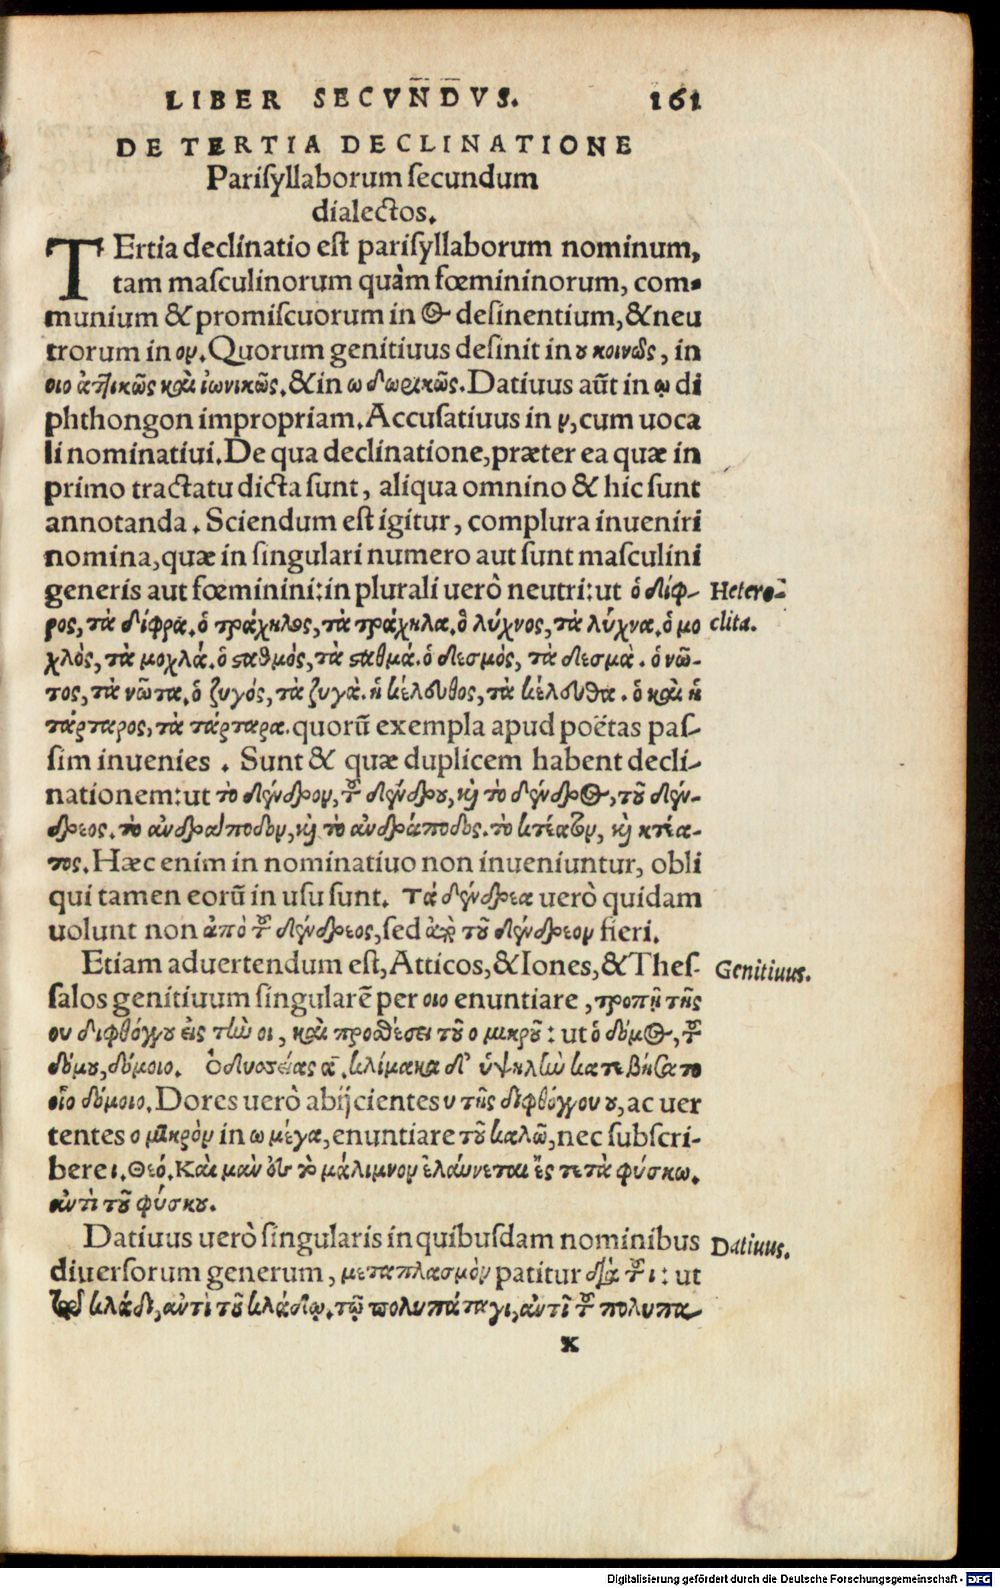 LIBER SECVNDVS. 161
DE TERTIA DECLINATIONE
Pariſyllaborum ſecundum
dialectos.
TErtia declinatio eſt pariſyllaborum nominum,
tam maſculinorum quàm fœmininorum, com-
munium & promiſcuorum in ος deſinentium, & neu
trorum in ον. Quorum genitiuus deſinit in ου κοινῶς, in
οιο ἀττικῶς καὶ ἰωνικῶς. & in ω δωρικῶς. Datiuus aūt in ῳ di
phthongon impropriam. Accuſatiuus in ν, cum uoca
li nominatiui. De qua declinatione, præter ea quæ in
primo tractatu dicta ſunt, aliqua omnino & hic ſunt
annotanda. Sciendum eſt igitur, complura inueniri
nomina, quæ in ſingulari numero aut ſunt maſculini
generis aut fœminini: in plurali uerò neutri: ut ὁ δίφ- Hetero-
ρος, τὰ δίφρα. ὁ τράχηλος, τὰ τράχηλα. ὁ λύχνος, τὰ λύχνα. ὁ μο clita.
χλός, τὰ μοχλά. ὁ ςαθμός, τὰ ςαθμά. ὁ δεσμός, τὰ δεσμὰ. ὁ νῶ-
τος, τὰ νῶτα. ὁ ζυγός, τὰ ζυγὰ. ἡ κέλευθος, τὰ κέλευθα. ὁ καὶ ἡ
τάρταρος, τὰ τάρταρα. quorū exempla apud poëtas paſ-
ſim inuenies. Sunt & quæ duplicem habent decli-
nationem: ut τὸ δένδρον, τοῦ δένδρου, καὶ τὸ δένδρος, τοῦ δέν-
δρεος. τὸ ἀνδράποδον, καὶ τὸ ἀνδράποδος. τὸ κτέατον, καὶ κτέα-
τος. Hæc enim in nominatiuo non inueniuntur, obli
qui tamen eorū in uſu ſunt. Τά δένδρεα uerò quidam
uolunt non ἀπὸ τοῦ δένδρεος, ſed ἀπὸ τοῦ δένδρεον fieri.
Etiam aduertendum eſt, Atticos, & Iones, & Theſ- Genitiuus.
ſalos genitiuum ſingularē per οιο enuntiare, τροπῇ τῆς
ου διφθόγγου εἰς τὴν οι, καὶ προσθέσει τοῦ ο μικροῦ: ut ὁ δόμος, τοῦ
δόμου, δόμοιο. Ὀδυσσείας α. κλίμακα δ' ὑψηλὴν κατεβήσατο
οἷο δόμοιο. Dores uerò abijcientes υ τῆς διφθόγγου ου, ac uer
tentes ο μικρὸν in ω μέγα, enuntiare τοῦ καλῶ, nec ſubſcri-
bere ι. Θεό. Καὶ μαν ὁς το μάλιμνον ἐλαύνεται ἔς τε τὰ φύσκω.
ἀντὶ τοῦ φύσκου.
Datiuus uerò ſingularis in quibuſdam nominibus Datiuus.
diuerſorum generum, μεταπλασμὸν patitur διὰ τοῦ ι: ut
τῷ κλάδι, ἀντὶ τοῦ κλάδῳ. τῷ πολυπάταγι, ἀντὶ τοῦ πολυπα-
x
Digitalisierung gefördert durch die Deutsche Forschungsgemeinschaft - DFG